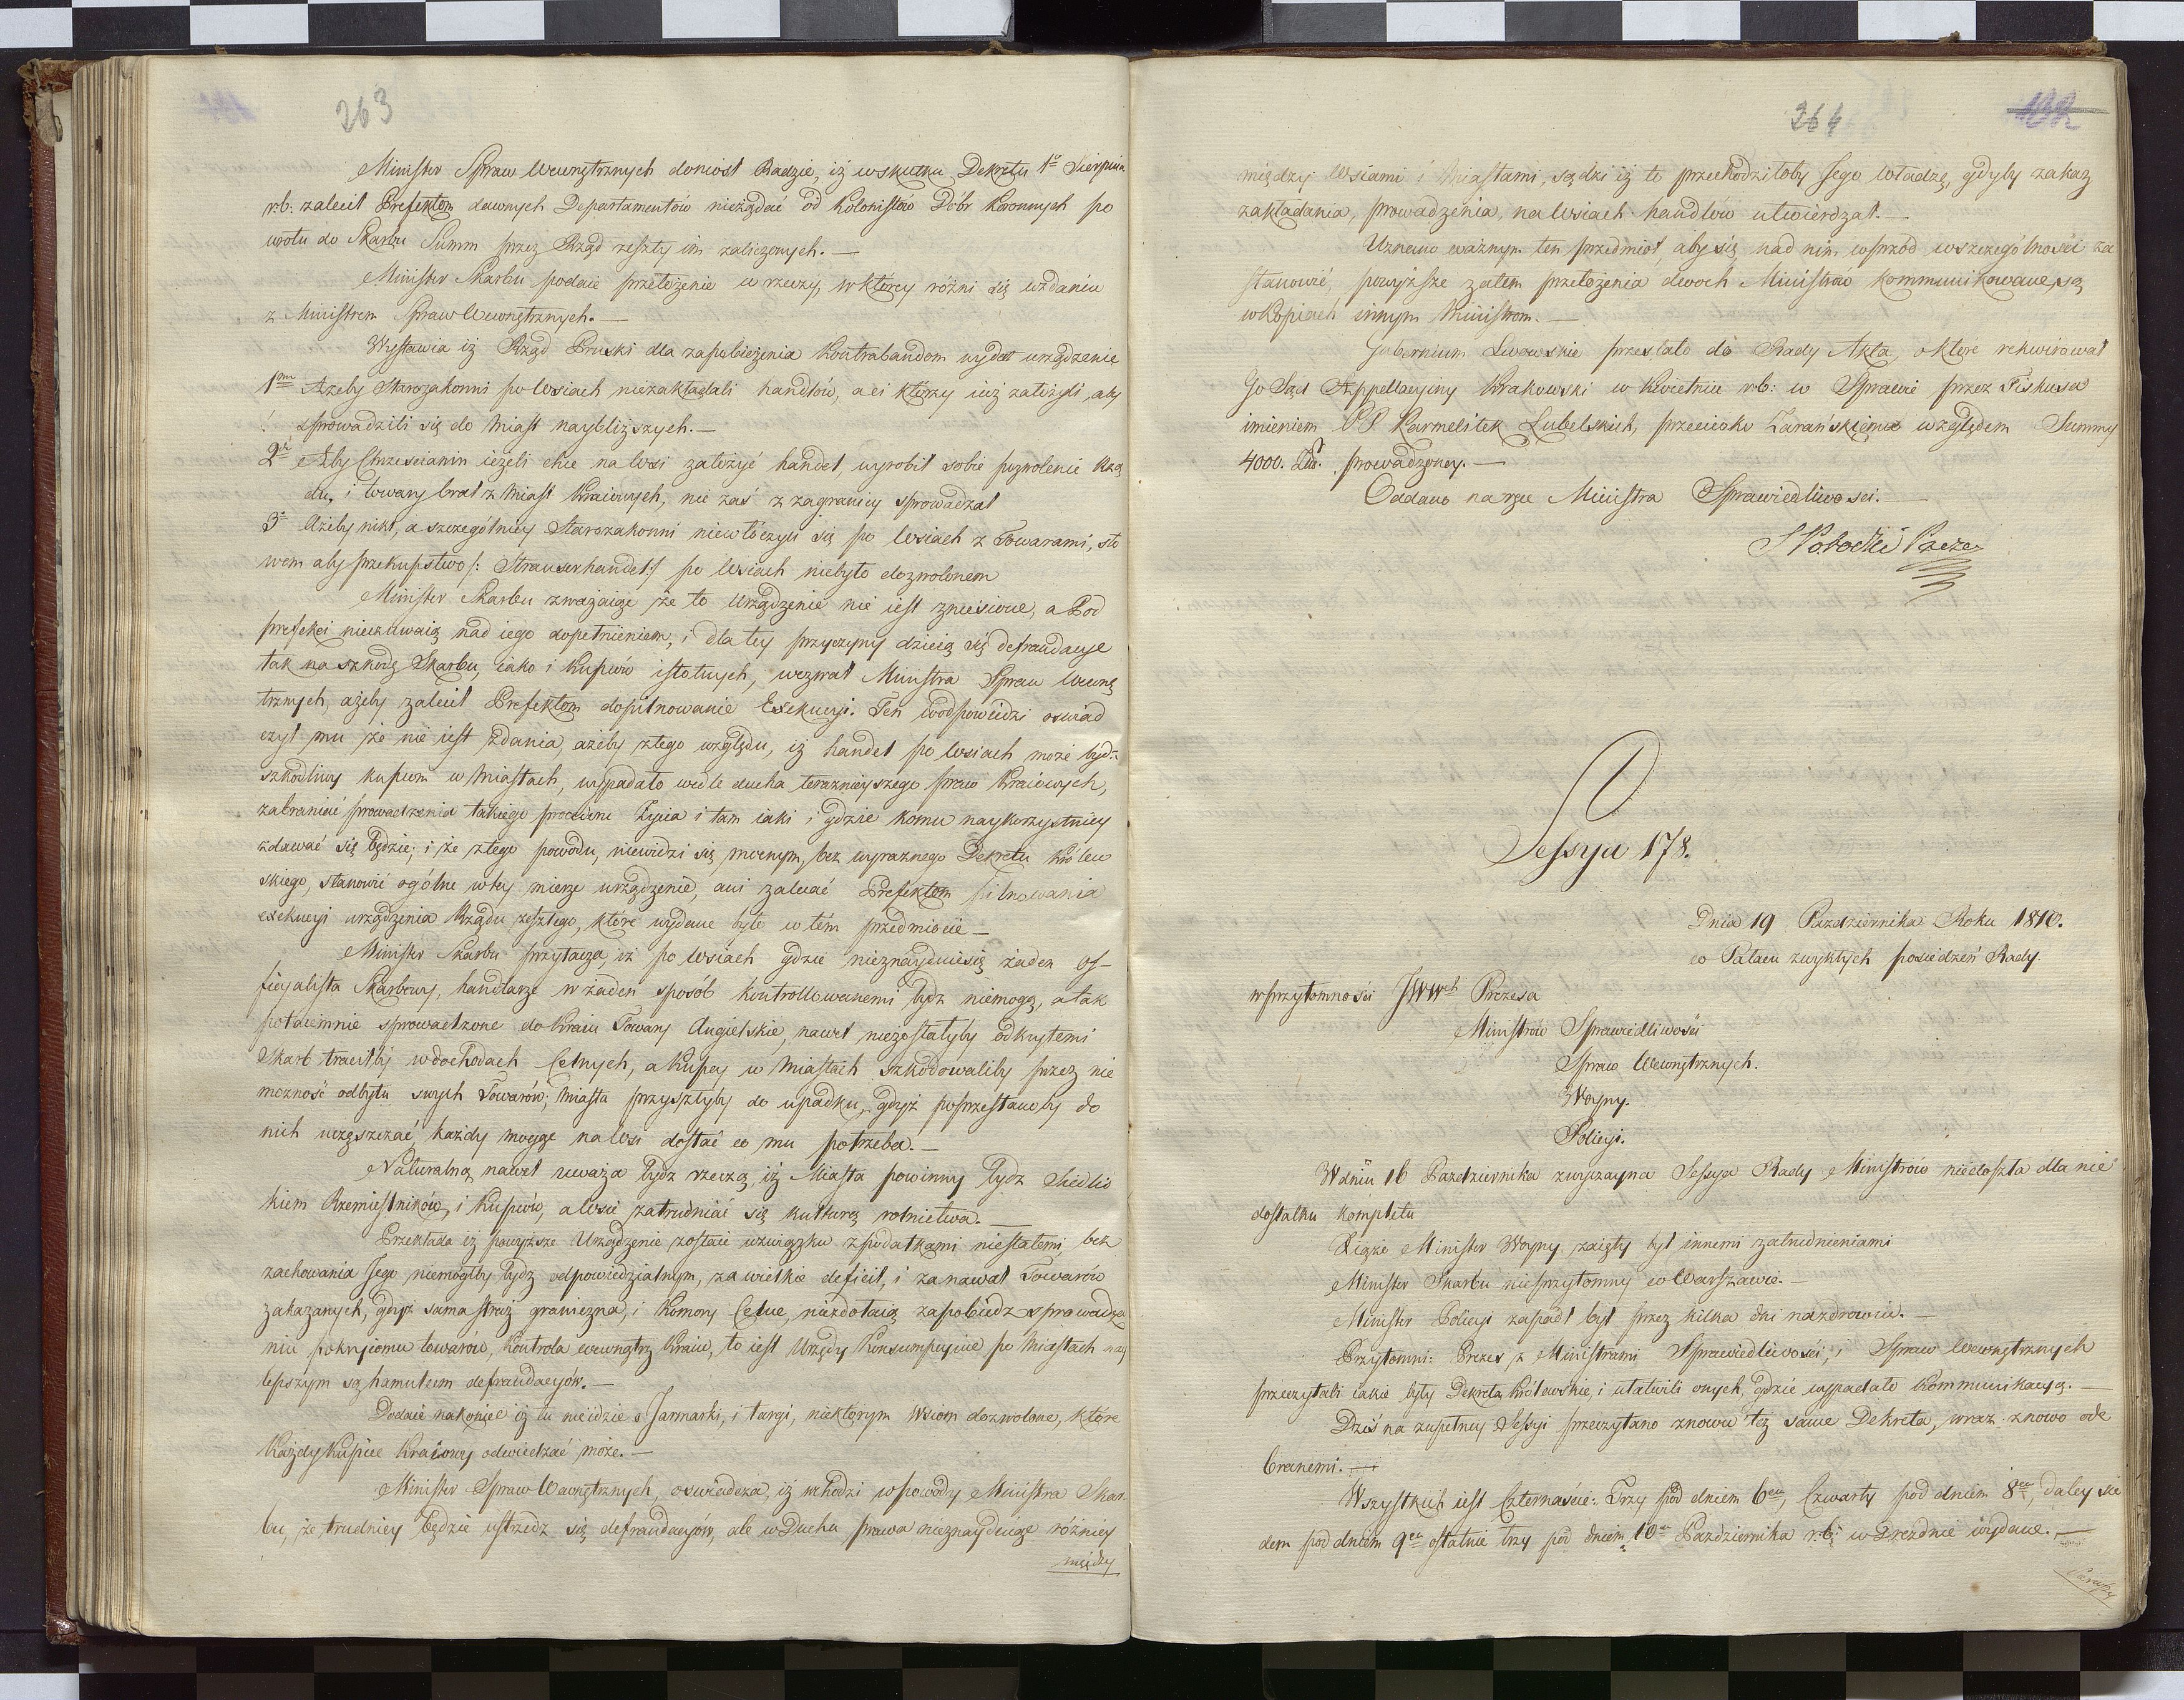 263
Minister Spraw Wewnętrznych doniosł Radzie, iż wskutku Dekretu 1º Sierpnia
r:b: zalecił Prefektom dawnych Departamentów nieżądać od Kolonistów Dóbr Koronnych po
wrotu do Skarbu Summ przez Rząd zeszły im zaliczonych.—
Minister Skarbu podaie przełożenie w rzeczy, w którey różni się wzdaniu
z Ministrem Spraw Wewnętrznych.—
Wystawia iż Rząd Pruski dla zapobieżenia Kontrabandom wydał urządzenie
1mo Ażeby Starozakonni po Wsiach niezakładali handlów, a ci którzy iuż założyli, aby
sprowadzili się do Miast naybliższych.—
2do Aby Chrzescianin ieżeli chce na Wsi założyć handel, wyrobił sobie pozwolenie Rzą
du, i towary brał z Miast Kraiowych, nie zaś z zagranicy sprowadzał
3o Ażeby nikt, a szczególniey Starozakonni niewłóczyli się po Wsiach z Towarami, sło
wem aby przekupstwo /: Strauserhandel :/ po Wsiach niebyło dozwolonem
Minister Skarbu zważaiąc że to Urządzenie nie iest zniesione, a Pod
prefekci nieczuwaią nad iego dopełnieniem, i dla tey przyczyny dzieią się defraudacye
tak na szkodę Skarbu, iako i Kupców istotnych, wezwał Ministra Spraw Wewnę
trznych, ażeby zalecił Prefektom dopilnowanie Exekucyi. Ten w odpowiedzi oswiad
czył mu że nie iest zdania, ażeby ztego względu, iż handel po Wsiach może bydź
szkodliwy kupcom w Miastach, wypadało wedle ducha teraznieyszego praw Kraiowych,
zabraniać prowadzenia takiego procederu życia i tam iaki i gdzie komu naykorzystniey
zdawać się będzie; i że ztego powodu, niewidzi się mocnym, bez wyraznego Dekretu Królew
skiego, stanowić ogólne wtey mierze urządzenie, ani zalecać Prefektom pilnowania
exekucyi urządzenia Rządu zeszłego, które wydane było w tém przedmiocie—
Minister Skarbu przytacza, iż po Wsiach gdzie nieznayduiesię żaden Of-
ficyalista Skarbowy, handlarze w żaden sposób kontrollowanemi bydź niemogą, a tak
potaiemnie sprowadzone do Kraiu Towary Angielskie, nawet niezostałyby odkrytemi
Skarb traciłby w dochodach Celnych, a Kupcy w Miastach szkodowaliby przez nie
mozność odbytu swych Towarów; Miasta przyszłyby do upadku, gdyż poprzestanoby do
nich uczęszczać, każdy mogąc na Wsi dostać co mu potrzeba.—
Naturalną nawet uważa bydź rzeczą, iż Miasta powinny bydź Siedlis
kiem Rzemieślników, i Kupców, a Wsie zatrudniać się kulturą rolnictwa.—
Przekłada iż powyższe Urządzenie zostaie w związku z podatkami niestałemi, bez
zachowania Jego niemógłby bydź odpowiedzialnym, za wielkie deficit, i za nawał Towarów
zakazanych, gdyż sama straż graniczna, i Komory Celne, niezdołaią zapobiedz sprowadze
niu pokryiomu towarów, Kontrola wewnątrz Kraiu, to iest Urzędy Konsumpcyine po Miastach nay
lepszym są hamulcem defraudacyów.—
Dodaie nakoniec iż tu nieidzie o Jarmarki, i targi, niektórym Wsiom dozwolone, które
każdy Kupiec Kraiowy odwiedzać może.—
Minister Spraw Wewnętrznych, oswiadcza, iż wchodzi w powody Ministra Skar
bu, że trudniey będzie ustrzedz się defraudacyów, ale w Duchu prawa nieznayduiąc różnicy
między
264
między Wsiami i Miastami, sądzi iż to przechodziłoby Jego władzę, gdyby zakaz
zakładania, prowadzenia, na Wsiach handlów utwierdzał.—
Uznano ważnym ten przedmiot, aby się nad nim wprzód wszczególności za
stanowić, powyższe zatem przełożenia dwoch Ministrów kommunikowane są
w Kopiach innym Ministrom.—
Gubernium Lwowskie przesłało do Rady Akta, o które rekwirował
Go Sąd Appellacyiny Krakowski w Kwietniu r:b: w Sprawie przez Fiskusa
imieniem PP Karmelitek Lubelskich, przeciwko Zarańskiemu względem Summy
4000. Złp. prowadzoney.—
Oddano na ręce Ministra Sprawiedliwosci.—
S Potocki Prezes
Sessya 178.
Dnia 19 Pazdziernika Roku 1810.
w Pałacu zwykłych posiedzeń Rady.
w przytomności JWWch Prezesa
Ministrów Sprawiedliwości
Spraw Wewnętrznych.
Woyny.
Policyi.
W dniu 16 Pazdziernika zwyczayna Sessya Rady Ministrów niedoszła dla nie
dostatku kompletu
Xiąże Minister Woyny zaięty był innemi zatrudnieniami
Minister Skarbu nieprzytomny w Warszawie.—
Minister Policyi zapadł był przez kilka dni na zdrowiu.—
Przytomni: Prezes z Ministrami Sprawiedliwości, i Spraw Wewnętrznych
przeczytali iakie były Dekreta Królewskie, i ułatwili onych, gdzie wypadało kommunikacyą.—
Dziś na zupełney Sessyi przeczytano znowu też same Dekreta, wraz znowo ode
branemi.
Wszystkich iest Czternaście: Trzy pod dniem 6em, Czwarty pod dniem 8em, daley sie
dem pod dniem 9em ostatnie trzy pod dniem 10em Pazdziernika r:b: w Dreźnie wydane.—